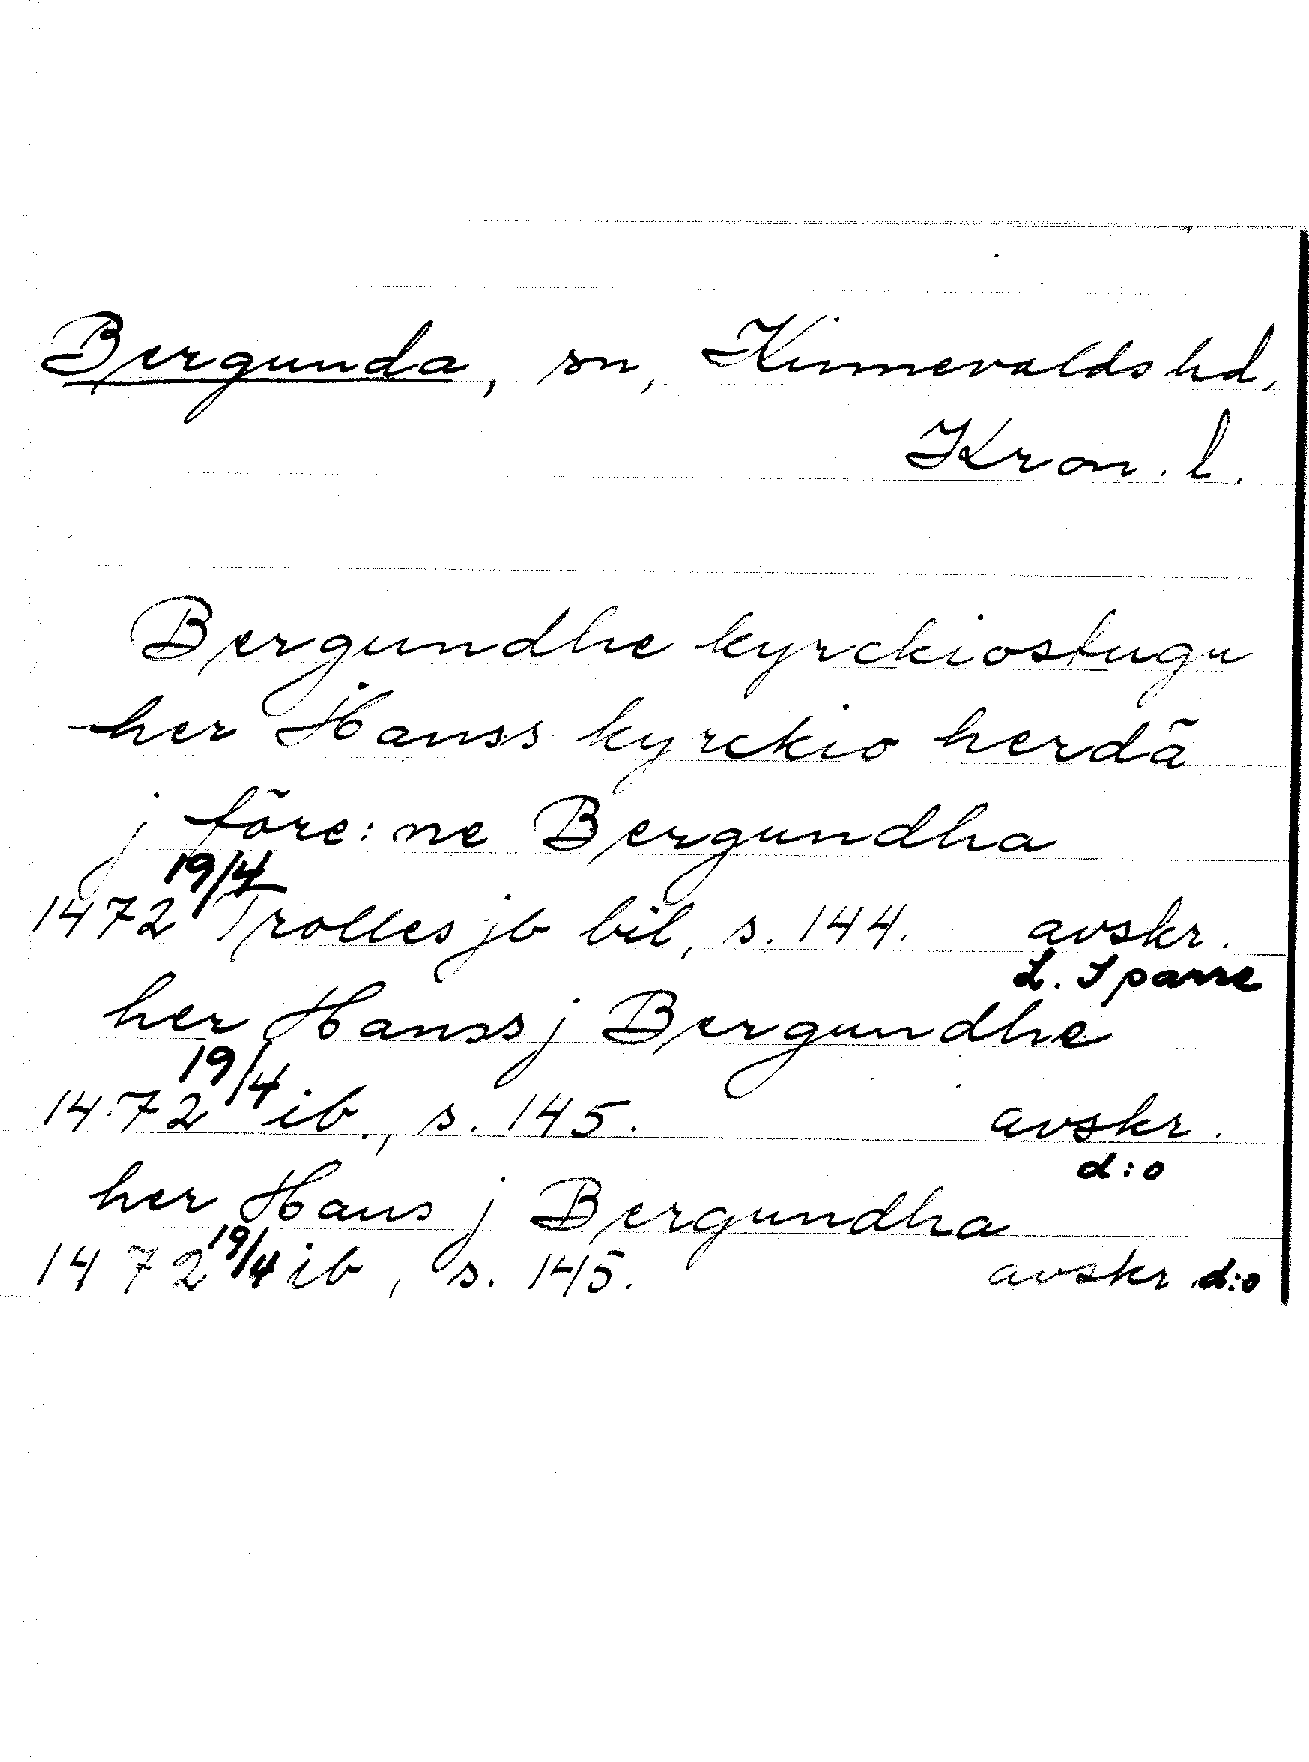 Bergunda, sn, Kinnevalds hd,
Kron. l.
Bergundhe kyrckiostugu
her Hanss kyrckio herdä
j före: ne Bergundha
1472 19/4 Trolles jb bil, s. 144. avskr.
L. Sparre
her Hanss j Bergundhe
1472 19/4 ib., s. 145. avskr.
d:o
her Hans j Bergundha
1472 19/4 ib, s. 145. avskr d:o